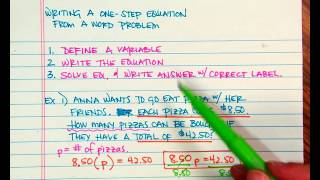 WRITING A ONE-STEP EQUATION
FROM A WORD PROBLEM
1. DEFINE A VARIABLE
2. WRITE THE EQUATION
3. SOLVE EQ. & WRITE ANSWER W/ CORRECT LABEL.
EX 1) ANNA WANTS TO GO EAT PIZZA W/ HER
FRIENDS. EACH PIZZA $8.50.
HOW MANY PIZZAS CAN BE IF
THEY HAVE A TOTAL OF $42.50?
p = # OF PIZZAS.
8.50(p) = 42.50
8.50 p = 42.50
8.50 8.50